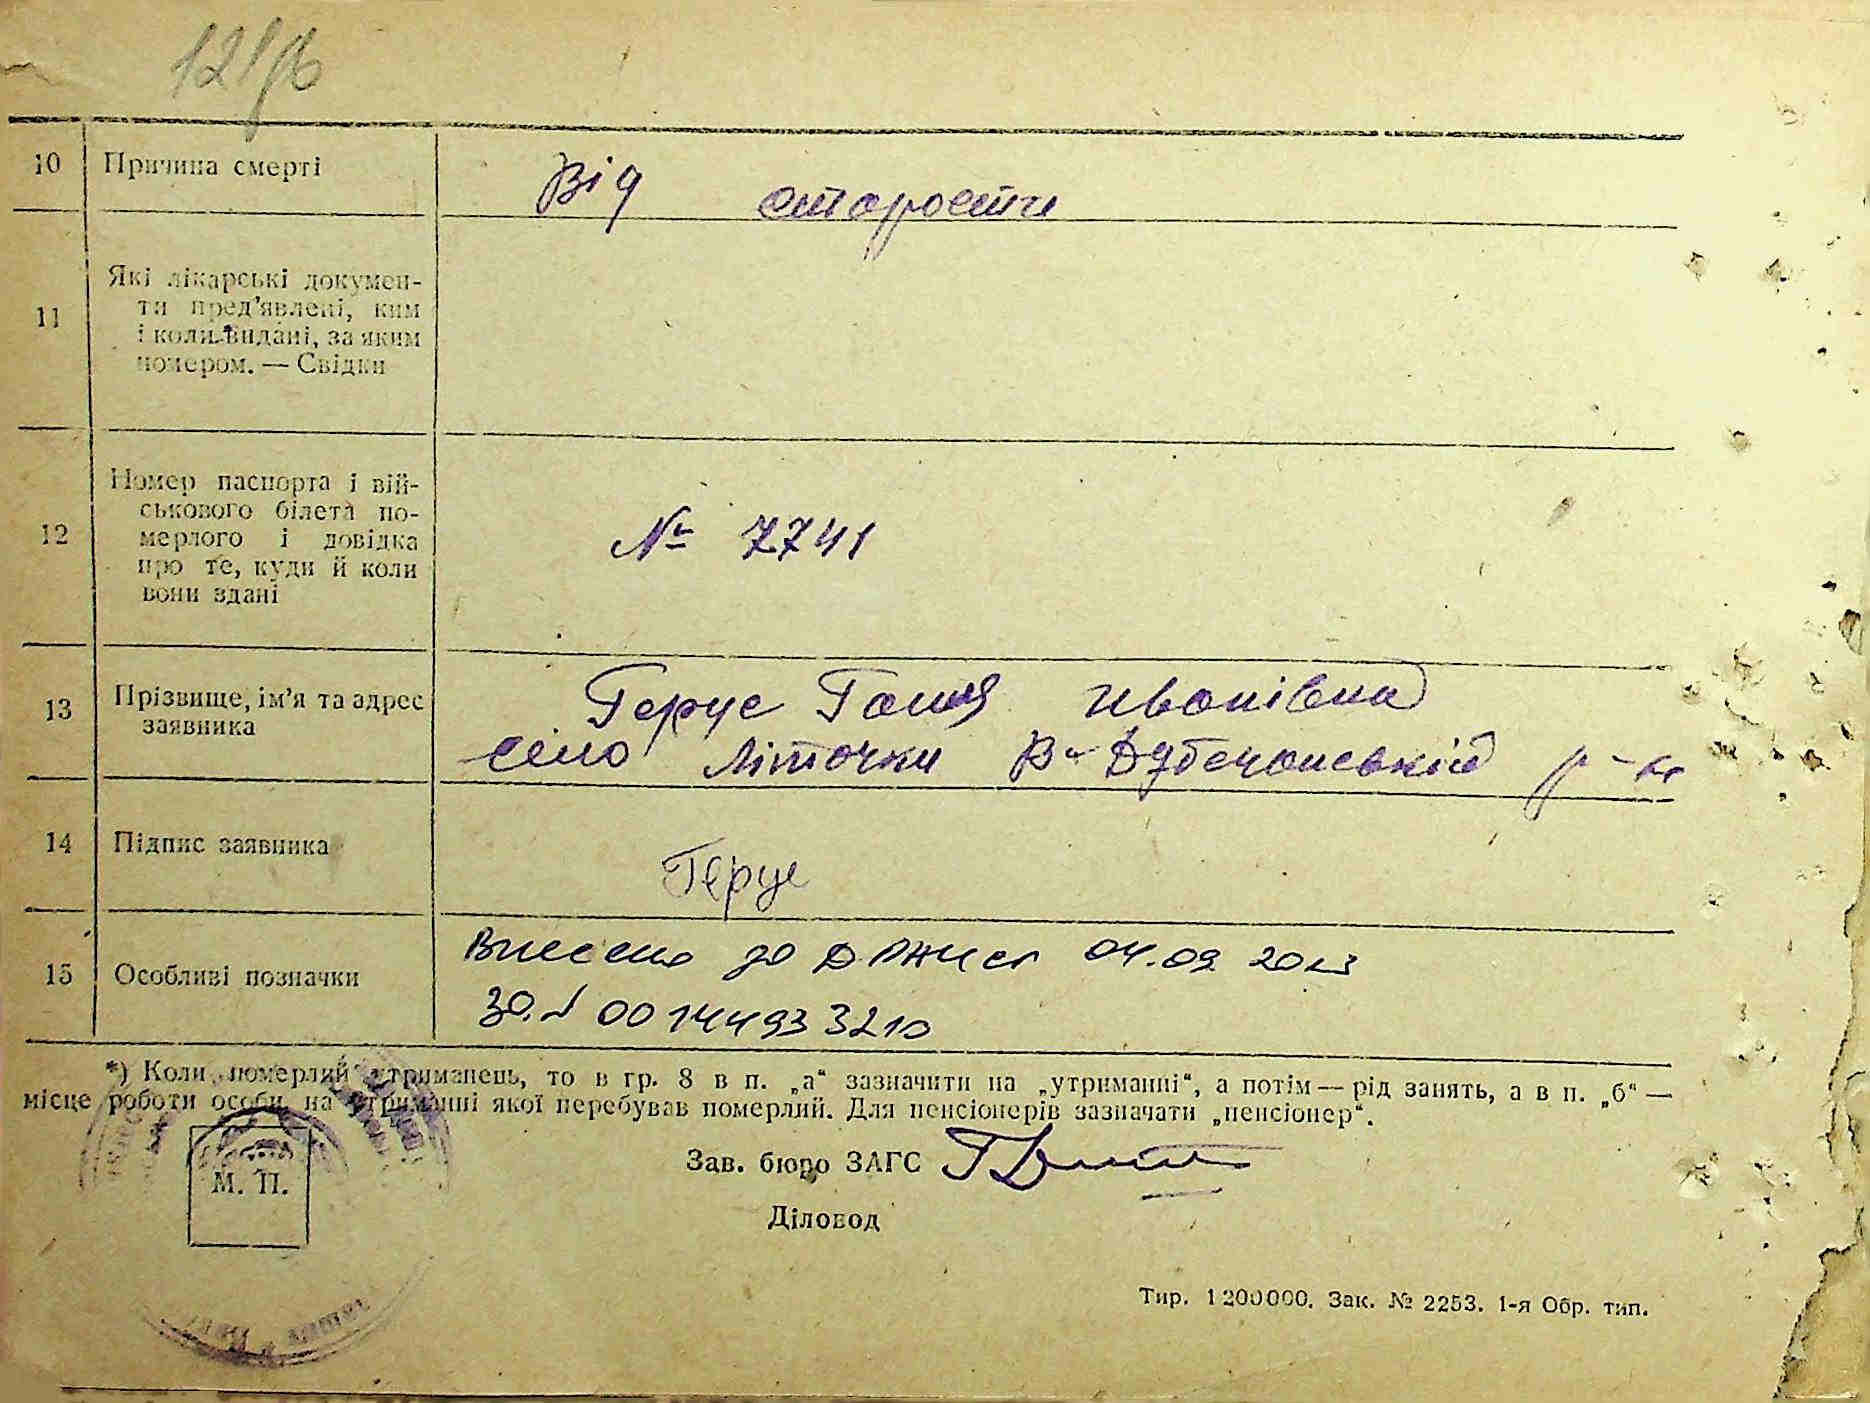 10 Причина смерті Від старости
11 Які лікарські документи пред'явлені, ким
і коли видані, за яким
номером. — Свідки
12 Номер паспорта і вій-
ськового білета по-
мерлого і довідка
про те, куди й коли
вони здані
№ 7741
13 Прізвище, ім'я та адрес
заявника
Герус Ганя Ивонівна
село Літочки В-Дубечанській р-н
14 Підпис заявника Герус
15 Особливі позначки
Внесено до ДРАЦСГ 04.09 2023
за.№ 00144933210
*) Коли померлий утриманець, то в гр. 8 в п. „а“ зазначити на „утриманні“, а потім — рід занять, а в п. „б“ —
місце роботи особи, на утриманні якої перебував померлий. Для пенсіонерів зазначати „пенсіонер“.
Зав. бюро ЗАГС
М. П.
Діловод
Тир. 1200000. Зак. № 2253. 1-я Обр. тип.